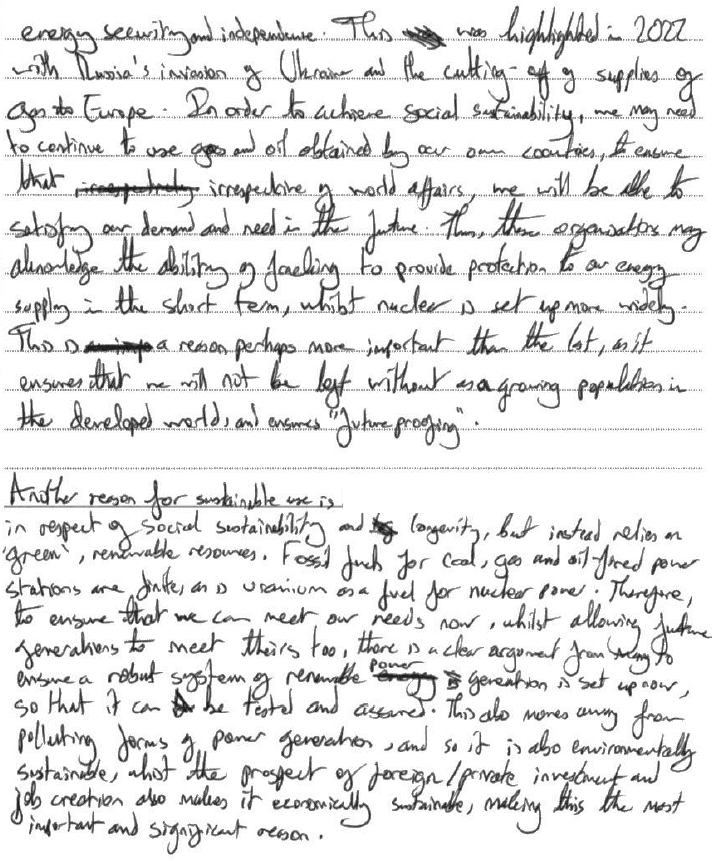 energy security and independence. This was highlighted in 2022
with Russia's invasion of Ukraine and the cutting-off of supplies of
gas to Europe. In order to achieve social sustainability, we may need
to continue to use gas and oil obtained by our own countries, to ensure
that irrespective of world affairs, we will be able to
satisfy our demand and need in the future. Thus, these organisations may
aknowledge the ability of fracking to provide protection to our energy
supply in the short term, whilst nuclear is set up more widely.
This is a reason perhaps more important than the last, as it
ensures that we will not be left without as a growing population in
the developed world, and ensures "future proofing".
Another reason for sustainable use is
in respect of social sustainability and longevity, but instead relies on
'green', renewable resources. Fossil fuels for coal, gas and oil-fired power
stations are finite, as is uranium as a fuel for nuclear power. Therefore,
to ensure that we can meet our needs now, whilst allowing future
generations to meet theirs too, there is a clear argument from to
ensure a robust system of renewable power generation is set up now,
so that it can be tested and assured. This also moves away from
polluting forms of power generation, and so it is also environmentally
sustainable, whilst the prospect of foreign/private investment and
job creation also makes it economically sustainable, making this the most
important and significant reason.